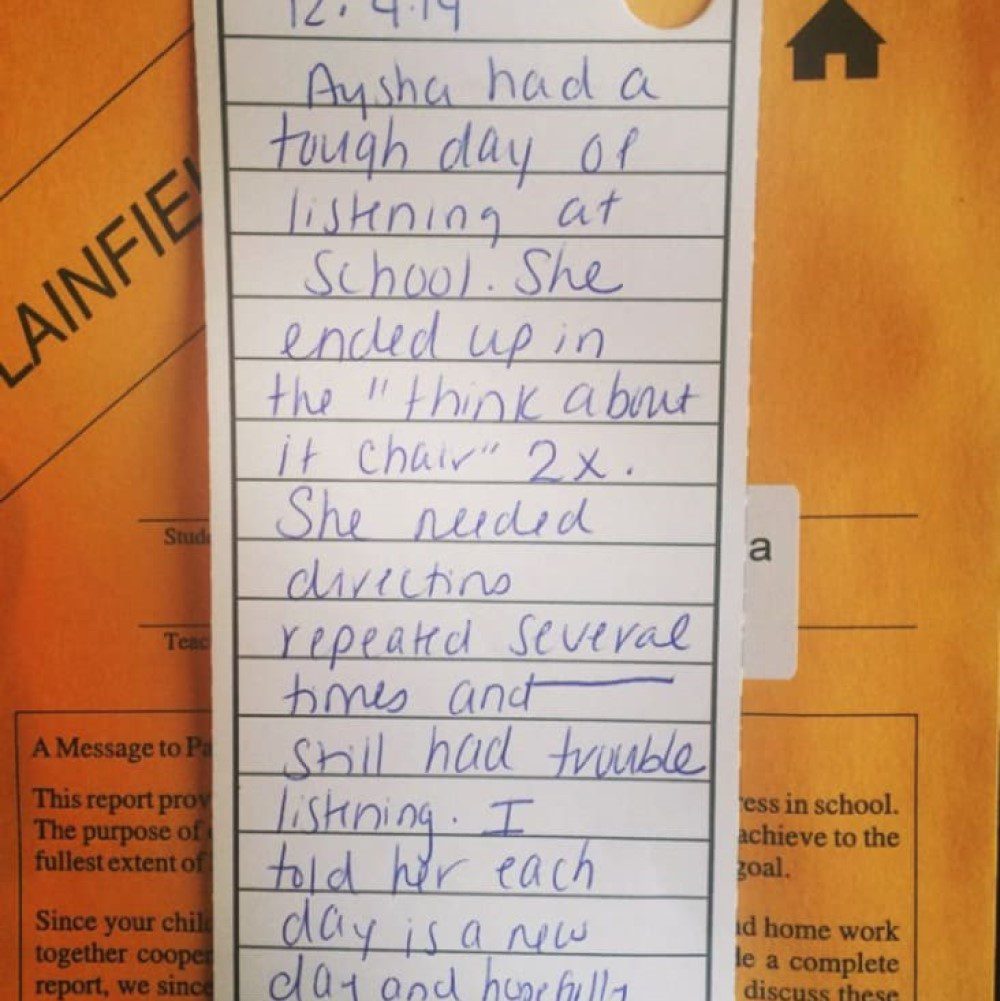 12.4.14
Aysha had a
tough day of
listening at
School. She
ended up in
the "think about
it chair" 2x.
She needed
directins
repeated several
times and
still had trouble
listening. I
told her each
day is a new
day and hopefully
LAINFIEL
Stude
a
Teac
A Message to Pa
This report prov
ess in school.
The purpose of
achieve to the
fullest extent of
goal.
Since your chil
d home work
together cooper
le a complete
report, we since
discuss these